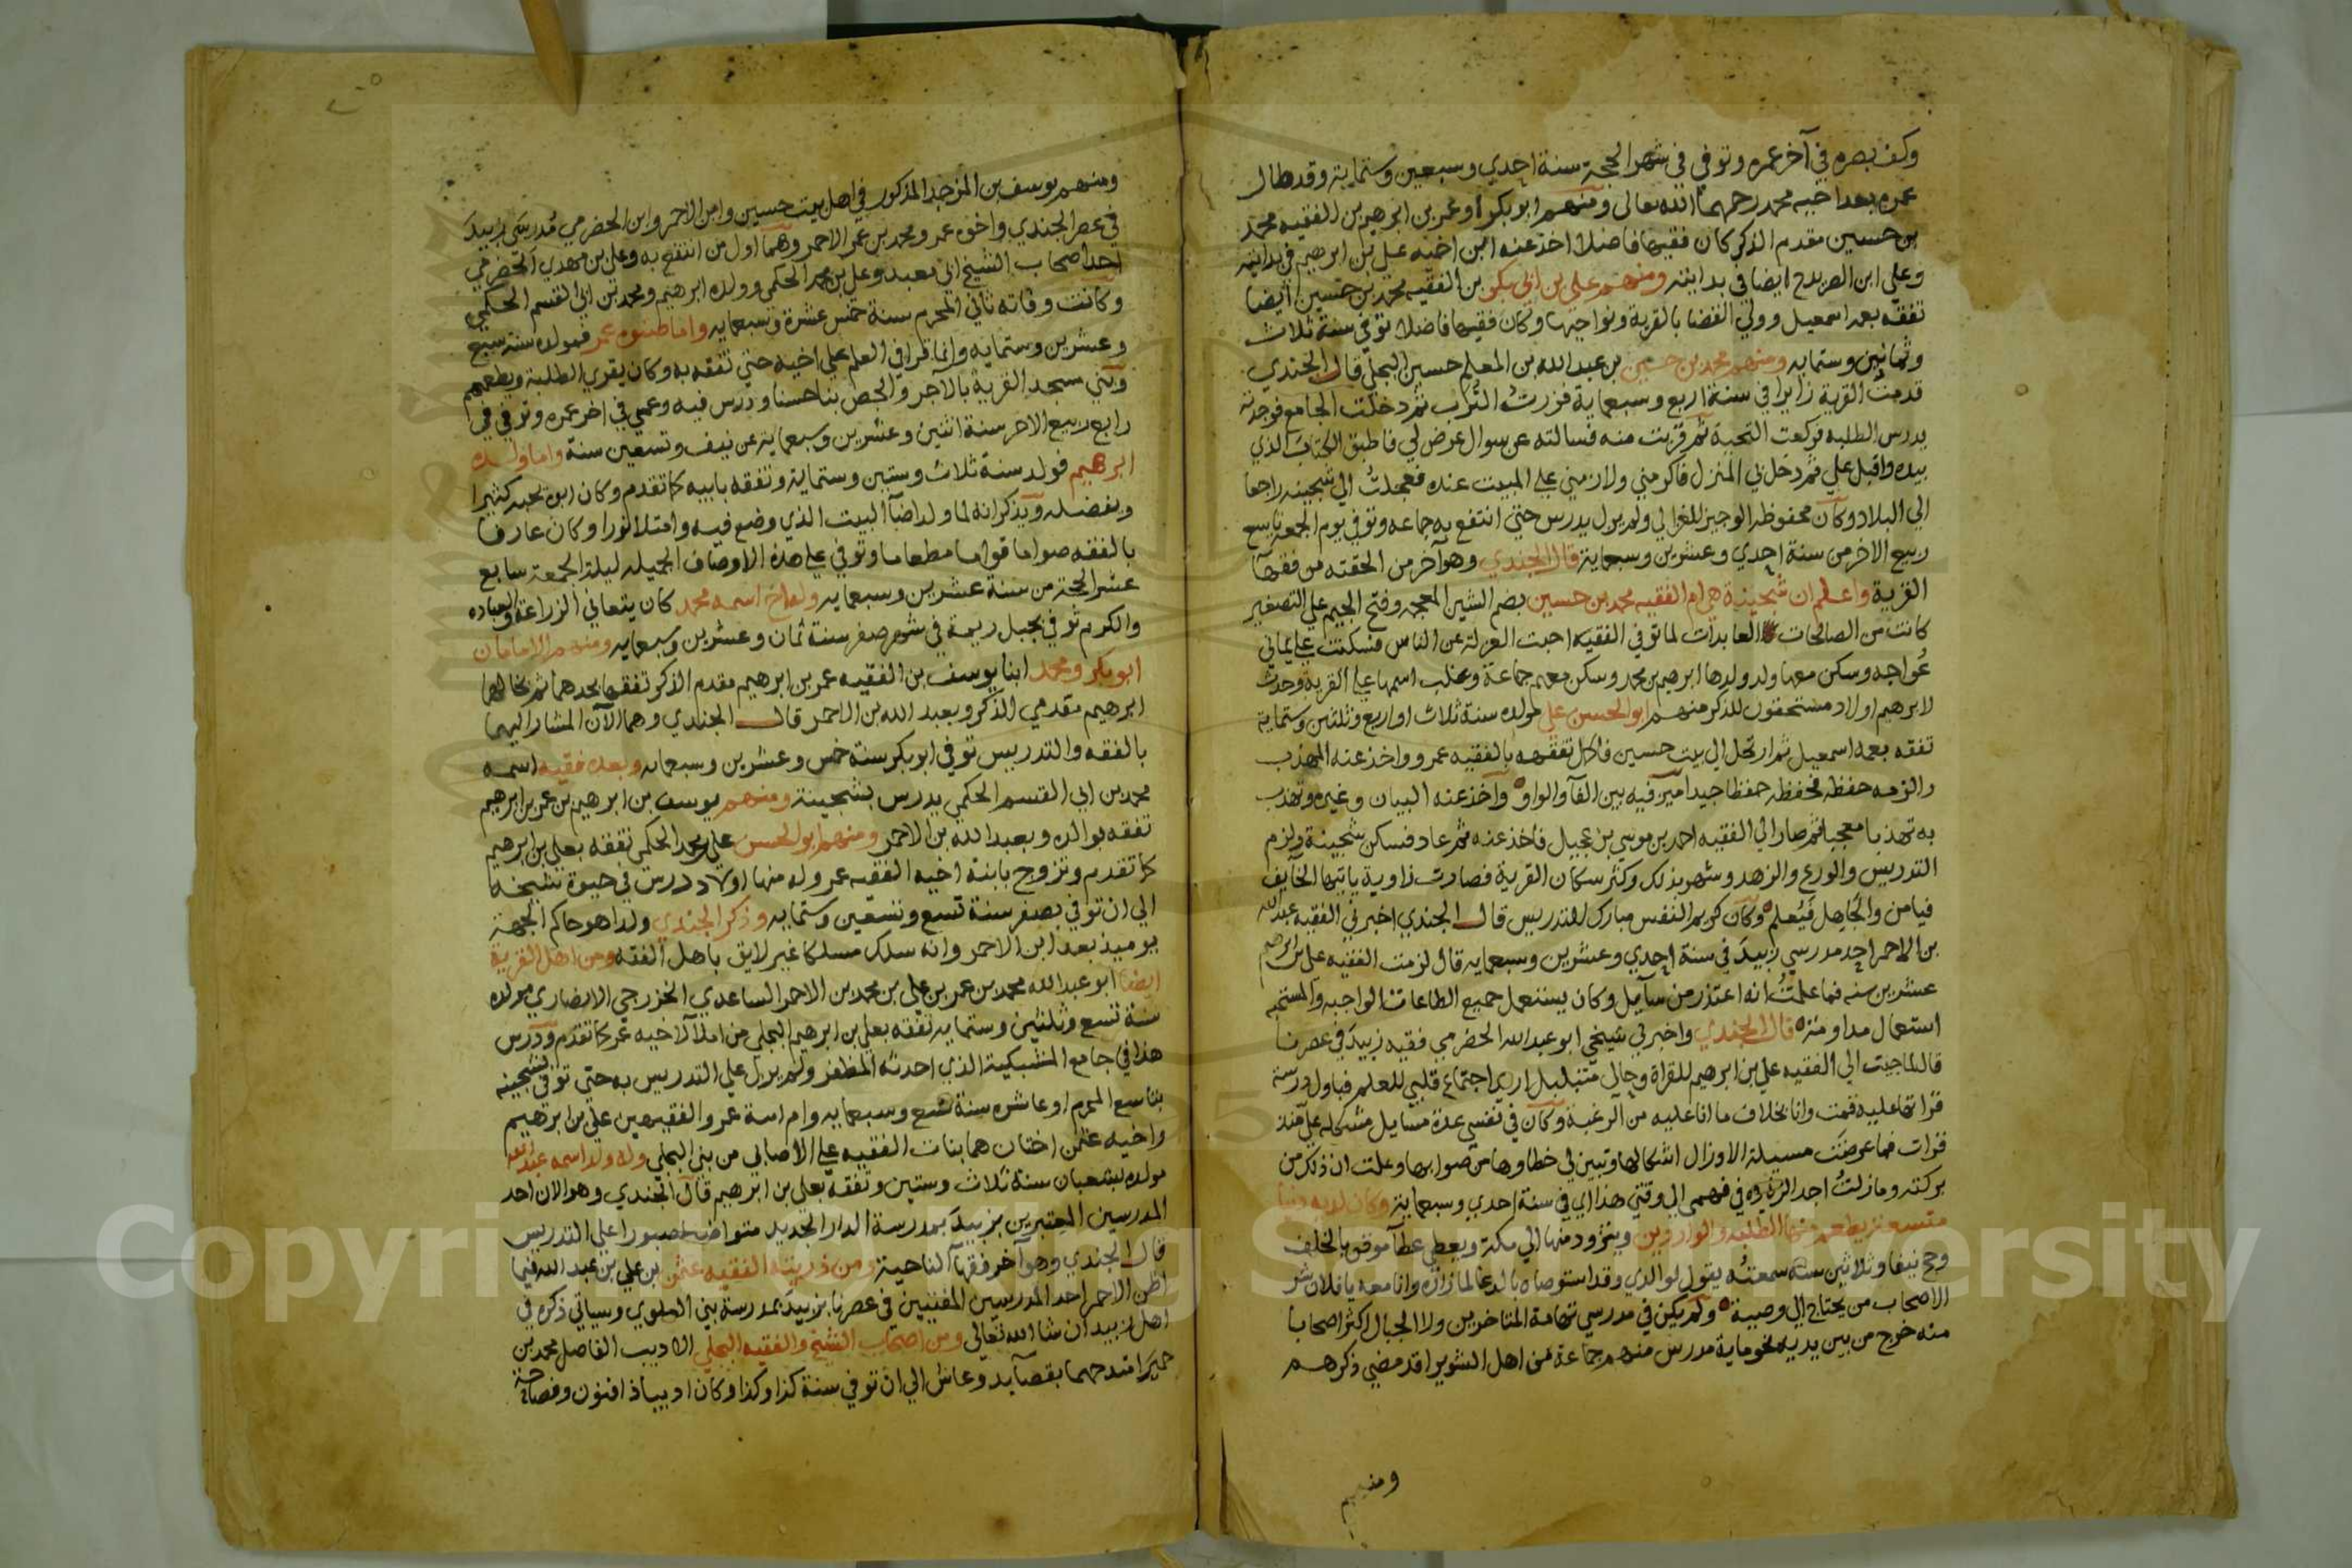 وكف بصره في آخر عمره وتوفي في شهر الحجة سنة احدي وسبعين وستماية وقد طال
عمره بعد اخيه محمد رحمهما الله تعالى ومنهم ابو بكر وعمر بن ابرهيم بن الفقيه محمد
بن حسين مقدم الذكر كان فقيها فاضلا اخذ عنه ابن اخيه علي بن ابرهيم في بدايته
وعلي ابن الصريدح ايضا في بدايته ومنهم علي بن ابي بكر بن الفقيه محمد بن حسين ايضا
تفقه بعمه اسمعيل وولي القضا بالقرية ونواحيها وكان فقيها فاضلا توفي سنة ثلاث
وثمانين وستمايه ومنهم محمد بن حسين بن عبد الله بن المعلم حسين البجلي قال الجندي
قدمت القرية زايرا في سنة اربع وسبعماية فزرت التراب ثم دخلت الجامع فوجدته
يدرس الطلبه فركعت التحية ثم قربت منه فسالته عن سوال عرض لي فاطبق الكتاب الذي
بيده واقبل علي ثم دخل بي المنزل فاكرمني ولازمني علي المبيت عنده فعجلت الي شجينه راجعا
الي البلاد وكان محفوظه الوجيز للغزالي ولم يزل يدرس حتي انتفع به جماعه وتوفي يوم الجمعة تاسع
ربيع الاخر من سنة احدي وعشرين وسبعماية قال الجندي وهو آخر من الحقته من فقهآ
القرية واعلم ان شجينة هي ام الفقيه محمد بن حسين بضم الشين المعجمه وفتح الجيم علي التصغير
كانت من الصالحات العابدات لما توفي الفقيه احبت العزلة عن الناس فسكنت علي يماني
عواجه وسكن معها ولد ولدها ابرهيم بن محمد وسكن معهم جماعة وغلب اسمها علي القرية وحدث
لابرهيم اولاد مستحقون للذكر منهم ابو الحسن علي مولده سنة ثلاث او اربع وثلثين وستماية
تفقه بعمه اسمعيل ثم ارتحل الي بيت حسين فاكمل تفقهه بالفقيه عمرو واخذ عنه المهذب
والزمه حفظه فحفظه حفظا جيدا ميز فيه بين الفآ والواو وآخذ عنه البيان وغيره وتهذب
به تهذبا معجبا ثم صار الي الفقيه احمد بن موسي بن عجيل فاخذ عنه ثم عاد فسكن شجينة ولزم
التدريس والورع والزهد وشهر بذلك وكثر سكان القرية فصارت زاوية ياتيها الخآيف
فيامن والجاهل فيعلم وكان كريم النفس مبارك للتدريس قال الجندي اخبرني الفقيه عبد الله
بن الاحمر احد مدرسي زبيد في سنة احدي وعشرين وسبعمايه قال لزمت الفقيه علي بن ابرهيم
عشرين سنه فما علمت انه اعتذر من سآيل وكان يستعمل جميع الطاعات الواجبه والمستحبه
استعمال مداومة قال الجندي واخبرني شيخي ابو عبد الله الحضرمي فقيه زبيد في عصرنا
قال لما جيت الي الفقيه علي بن ابرهيم للقراة وحالي متبلبل اريد اجتماع قلبي للعلم فباول درسة
قراتها عليه قمت وانا بخلاف ما انا عليه من الرغبة وكان في نفسي عدة مسايل مشكله علي منذ
قرات فما عرضت مسيلة الا وزال اشكالها وتبين لي خطاوها من صوابها وعلمت ان ذلك من
بركته وما زلت اجد الزيادة في فهمي الي وقتي هذا اي في سنة احدي وسبعماية وكان لديه دنيا
متسعة يطعم منها الطلبه والواردين ويتزود منها الي مكة ويعطي عطآ موقن بالخلف
وحج نيفا وثلاثين سنة سمعته يقول لوالدي وقد استوصاه بالدعا لما زاره وانا معه يا فلان شر
الاصحاب من يحتاج الي وصية ولم يكن في مدرسي تهامة المتاخرين ولا الجبال اكثر اصحابا
منه خرج من بين يديه نحو ماية مدرس منهم جماعة من اهل الشويرا قد مضي ذكرهم
ومنهم
ومنهم يوسف بن المزجد المذكور في اهل بيت حسين وابن الاحمر وابن الحضرمي مدرسي زبيد
في عصر الجندي واخوه عمر ومحمد بن عمر الاحمر وهما اول من انتفع به وعلي بن مهدي الحضرمي
احد اصحاب الشيخ ابي معبد وعلي بن محمد الحكمي وولده ابرهيم ومحمد بن ابي القسم الحكمي
وكانت وفاته ثاني المحرم سنة خمس عشرة وسبعمايه واما صنوه عمر فمولده سنة سبع
وعشرين وستمايه وانما قرا في العلم علي اخيه حتي تفقه به وكان يقري الطلبة ويطعمهم
وبني مسجد القرية بالآجر والجص بنا حسنا ودرس فيه وعمي في اخر عمره وتوفي في
رابع ربيع الاخر سنة اثنين وعشرين وسبعماية عن نيف وتسعين سنة واما ولده
ابرهيم فولد سنة ثلاث وستين وستماية وتفقه بابيه كما تقدم وكان ابوه يحبه كثيرا
ويفضله ويذكر انه لما ولد اضآ البيت الذي وضع فيه وامتلا نورا وكان عارفا
بالفقه صواما قواما مطعاما وتوفي علي هذه الاوصاف الجميله ليلة الجمعة سابع
عشر الحجة من سنة عشرين وسبعمايه وله اخ اسمه محمد كان يتعاني الزراعة والعباده
والكرم توفي بجبل ريمة في شهر صفر سنة ثمان وعشرين وسبعمايه ومنهم الامامان
ابو بكر ومحمد ابنا يوسف بن الفقيه عمر بن ابرهيم مقدم الذكر تفقها بجدهما ثم بخالهما
ابرهيم مقدمي الذكر وبعبد الله بن الاحمر قال الجندي وهما الآن المشار اليهما
بالفقه والتدريس توفي ابو بكر سنة خمس وعشرين وسبعمايه وبعده فقيه اسمه
محمد بن ابي القسم الحكمي يدرس بشجينة ومنهم يوسف بن ابرهيم بن عمر بن ابرهيم
تفقه بوالده وبعبد الله بن الاحمر ومنهم ابو الحسن علي بن محمد الحكمي تفقه بعلي بن ابرهيم
كما تقدم وتزوج بابنة اخيه الفقيه عمر وله منها اولاد درس في حيوة شيخه
الي ان توفي بصفر سنة تسع وتسعين وستمايه وذكر الجندي ولدا هو حاكم الجهة
يوميذ بعد ابن الاحمر وانه سلك مسلكا غير لايق باهل الفقه ومن اهل القرية
ايضا ابو عبد الله محمد بن عمر بن علي بن محمد بن الاحمر الساعدي الخزرجي الانصاري مولده
سنة تسع وثلثين وستمايه تفقه بعلي بن ابرهيم البجلي من املآ لاخيه عمر كما تقدم ودرس
هذا في جامع المنسكية الذي احدثه المظفر ولم يزل علي التدريس به حتي توفي بشجينه
بتاسع المحرم او عاشره سنة تسع وسبعمايه وام امراة عمر والفقيهين علي بن ابرهيم
واخيه عثمن اختان هما بنات الفقيه علي الاصابي من بني البجلي وله ولد اسمه عبد الله
مولده بشعبان سنة ثلاث وستين وتفقه بعلي بن ابرهيم قال الجندي وهو الان احد
المدرسين المعتبرين بزبيد بمدرسة الدار الجديد متواضعا صبورا علي التدريس
قال الجندي وهو آخر فقهآ الناحية ومن ذريته الفقيه عثمن بن علي بن عبد الله فيما
اظن الاحمر احد المدرسين المفتيين في عصرنا بزبيد بمدرسة بني العلوي وسياتي ذكره في
اهل زبيد ان شا الله تعالى ومن اصحاب الشيخ والفقيه البجلي الاديب الفاضل محمد بن
حمير امتدحهما بقصآيد وعاش الي ان توفي سنة كذا وكذا وكان اديبا ذا فنون وفصاحة
Copyright King Saud University